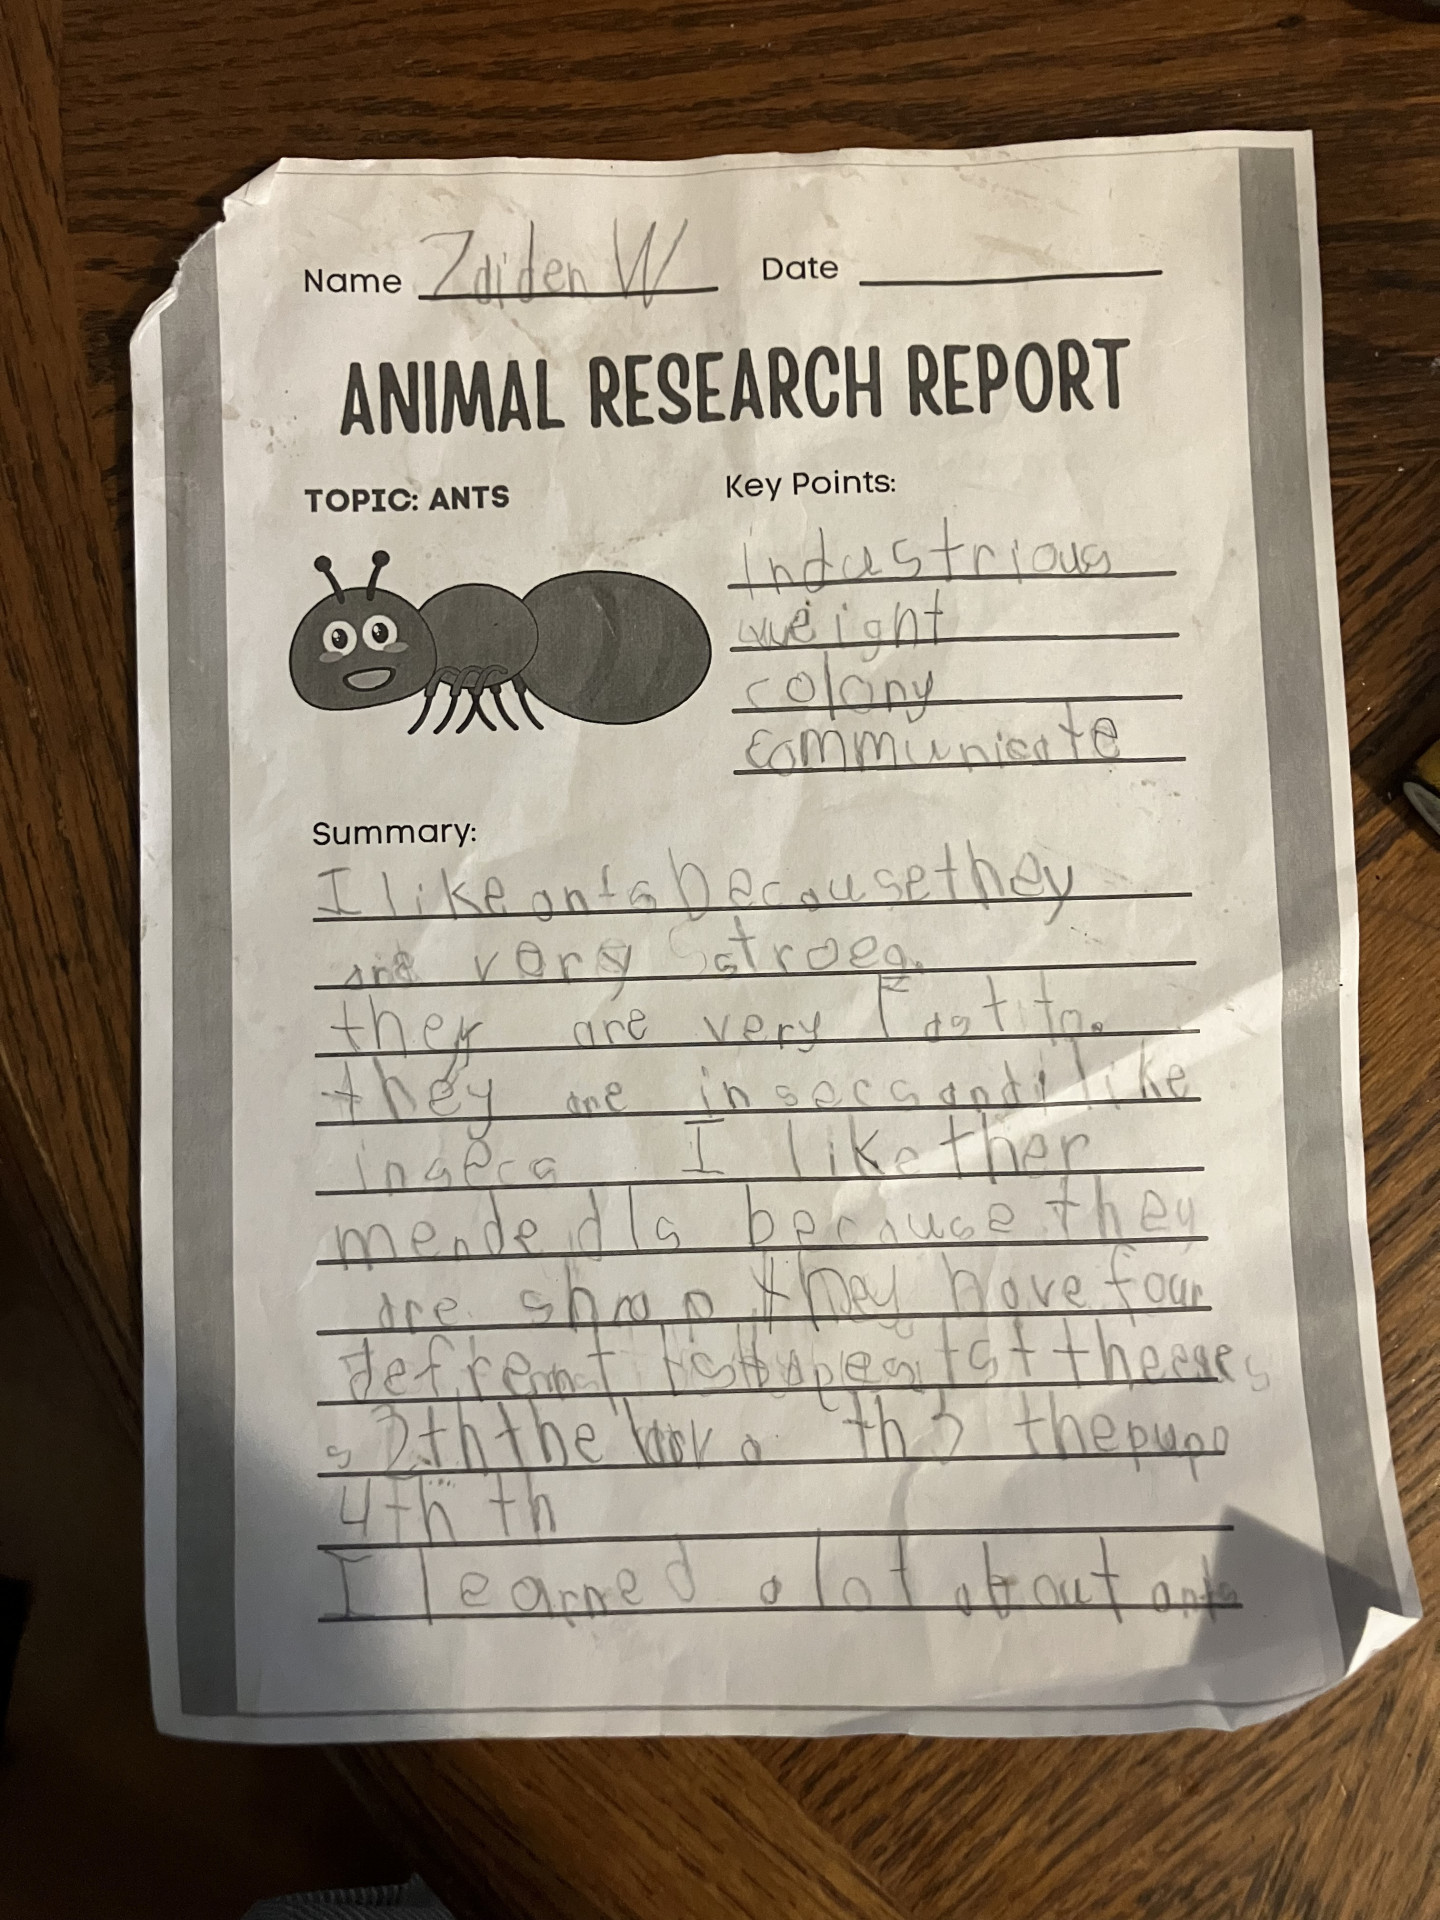 Name Zaiden W Date
ANIMAL RESEARCH REPORT
TOPIC: ANTS
Key Points:
industrious
weight
colony
communicate
Summary:
I like ants because they
are very stroeg.
they are very Fast to.
they are insecs and i like
insecs I like ther
mendedls because they
are shrap they have four
defrent 1st the eges
2th the larva th 3 the pupa
4th th
I learned a lot about ants